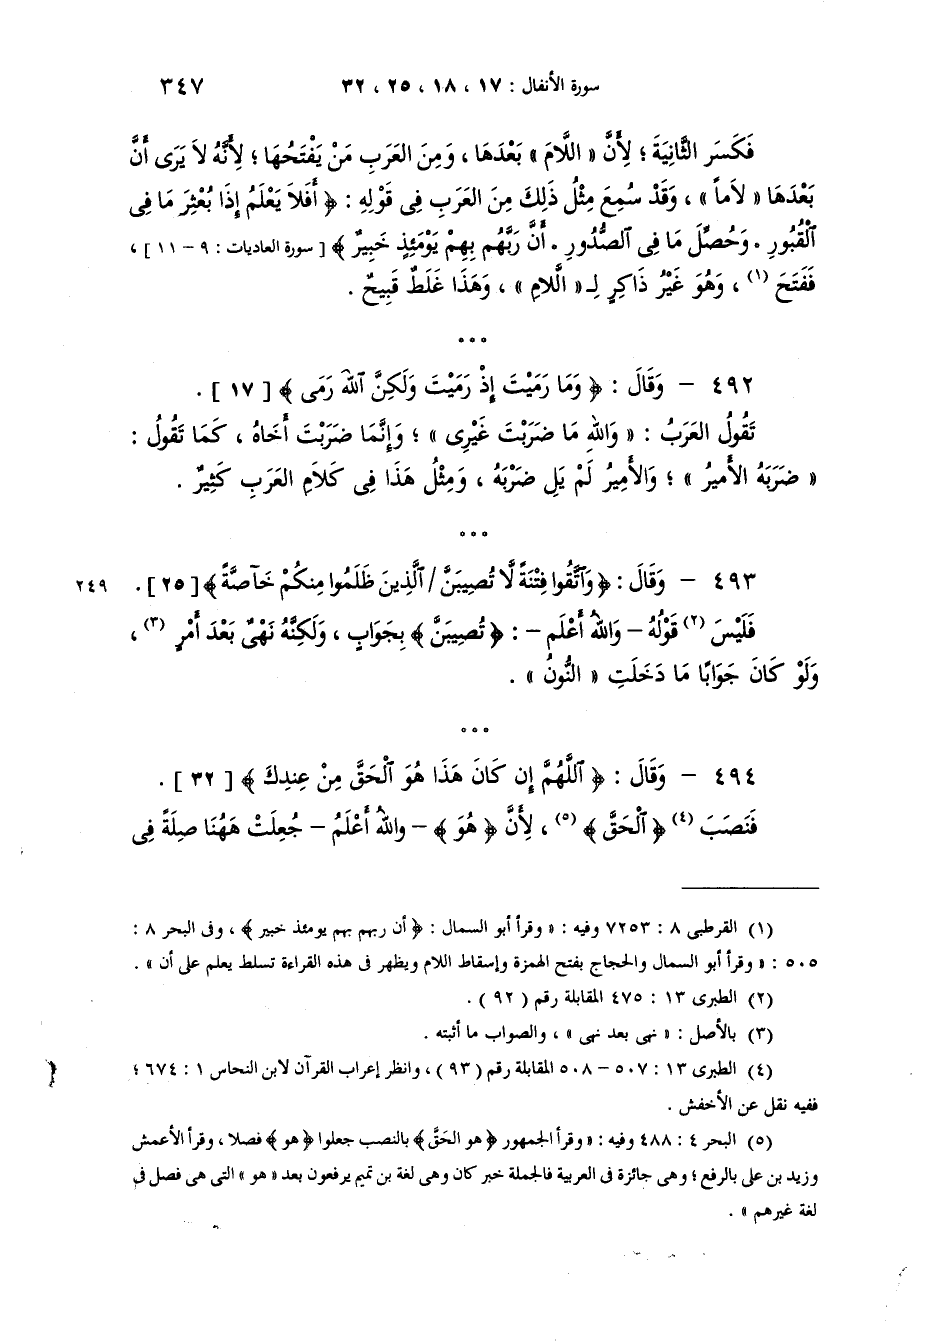 سورة الأنفال : ١٧ ، ١٨ ، ٢٥ ، ٣٢ ٣٤٧
فَكَسَر الثَّانِيَةَ ؛ لِأَنَّ « اللَّامَ » بَعْدَهَا ، وَمِنَ العَرَبِ مَنْ يَفْتَحُهَا ؛ لِأَنَّهُ لاَ يَرَى أَنَّ
بَعْدَهَا « لاَماً » ، وَقَدْ سُمِعَ مِثْلُ ذَلِكَ مِنَ العَرَبِ فِى قَوْلِهِ : ﴿ أَفَلاَ يَعْلَمُ إِذَا بُعْثِرَ مَا فِى
ٱلْقُبُورِ . وَحُصِّلَ مَا فِى ٱلصُّدُورِ . أَنَّ رَبَّهُم بِهِمْ يَوْمَئِذٍ خَبِيرٌ ﴾ [ سورة العاديات : ٩ – ١١ ] ،
فَفَتَحَ (١) ، وَهُوَ غَيْرُ ذَاكِرٍ لِـ « الَّلامِ » ، وَهَذَا غَلَطٌ قَبِيحٌ .
° ° °
٤٩٢ – وَقَالَ : ﴿ وَمَا رَمَيْتَ إِذْ رَمَيْتَ وَلَكِنَّ ٱللهَ رَمَى ﴾ [ ١٧ ] .
تَقُولُ العَرَبُ : « وَاللهِ مَا ضَرَبْتَ غَيْرِى » ؛ وَإِنَّمَا ضَرَبْتَ أَخَاهُ ، كَمَا تَقُولُ :
« ضَرَبَهُ الأَميرُ » ؛ وَالأَمِيرُ لَمْ يَلِ ضَرْبَهُ ، وَمِثْلُ هَذَا فِى كَلاَمِ العَرَبِ كَثِيرٌ .
° ° °
٤٩٣ – وَقَالَ : ﴿ وَٱتَّقُوا فِتْنَةً لَّا تُصِيبَنَّ / ٱلَّذِينَ ظَلَمُوا مِنكُمْ خَآصَّةً ﴾ [ ٢٥ ] . ٢٤٩
فَلَيْسَ (٢) قَوْلُهُ – وَاللهُ أَعْلَم – : ﴿ تُصِيبَنَّ ﴾ بِجَوَابٍ ، وَلَكِنَّهُ نَهْىٌ بَعْدَ أَمْرٍ (٣) ،
وَلَوْ كَانَ جَوَابًا مَا دَخَلَتِ « النُّونُ » .
° ° °
٤٩٤ – وَقَالَ : ﴿ ٱللَّهُمَّ إِن كَانَ هَذَا هُوَ ٱلْحَقَّ مِنْ عِندِكَ ﴾ [ ٣٢ ] .
فَنَصَبَ (٤) ﴿ ٱلْحَقَّ ﴾ (٥) ، لِأَنَّ ﴿ هُوَ ﴾ – واللهُ أَعْلَمُ – جُعِلَتْ هَهُنَا صِلَةً فِى
(١) القرطبى ٨ : ٧٢٥٣ وفيه : « وقرأ أبو السمال : ﴿ أن ربهم بهم يومئذ خبير ﴾ ، وفى البحر ٨ :
٥٠٥ : « وقرأ أبو السمال والحجاج بفتح الهمزة وإسقاط اللام ويظهر فى هذه القراءة تسلط يعلم على أن » .
(٢) الطبرى ١٣ : ٤٧٥ المقابلة رقم ( ٩٢ ) .
(٣) بالأصل : « نهى بعد نهى » ، والصواب ما أثبته .
(٤) الطبرى ١٣ : ٥٠٧ – ٥٠٨ المقابلة رقم ( ٩٣ ) ، وانظر إعراب القرآن لابن النحاس ١ : ٦٧٤ ؛
ففيه نقل عن الأخفش .
(٥) البحر ٤ : ٤٨٨ وفيه : « وقرأ الجمهور ﴿ هو الحَقَّ ﴾ بالنصب جعلوا ﴿ هو ﴾ فصلا ، وقرأ الأعمش
وزيد بن على بالرفع ؛ وهى جائزة فى العربية فالجملة خبر كان وهى لغة بن تميم يرفعون بعد « هو » التى هى فصل فى
لغة غيرهم » .